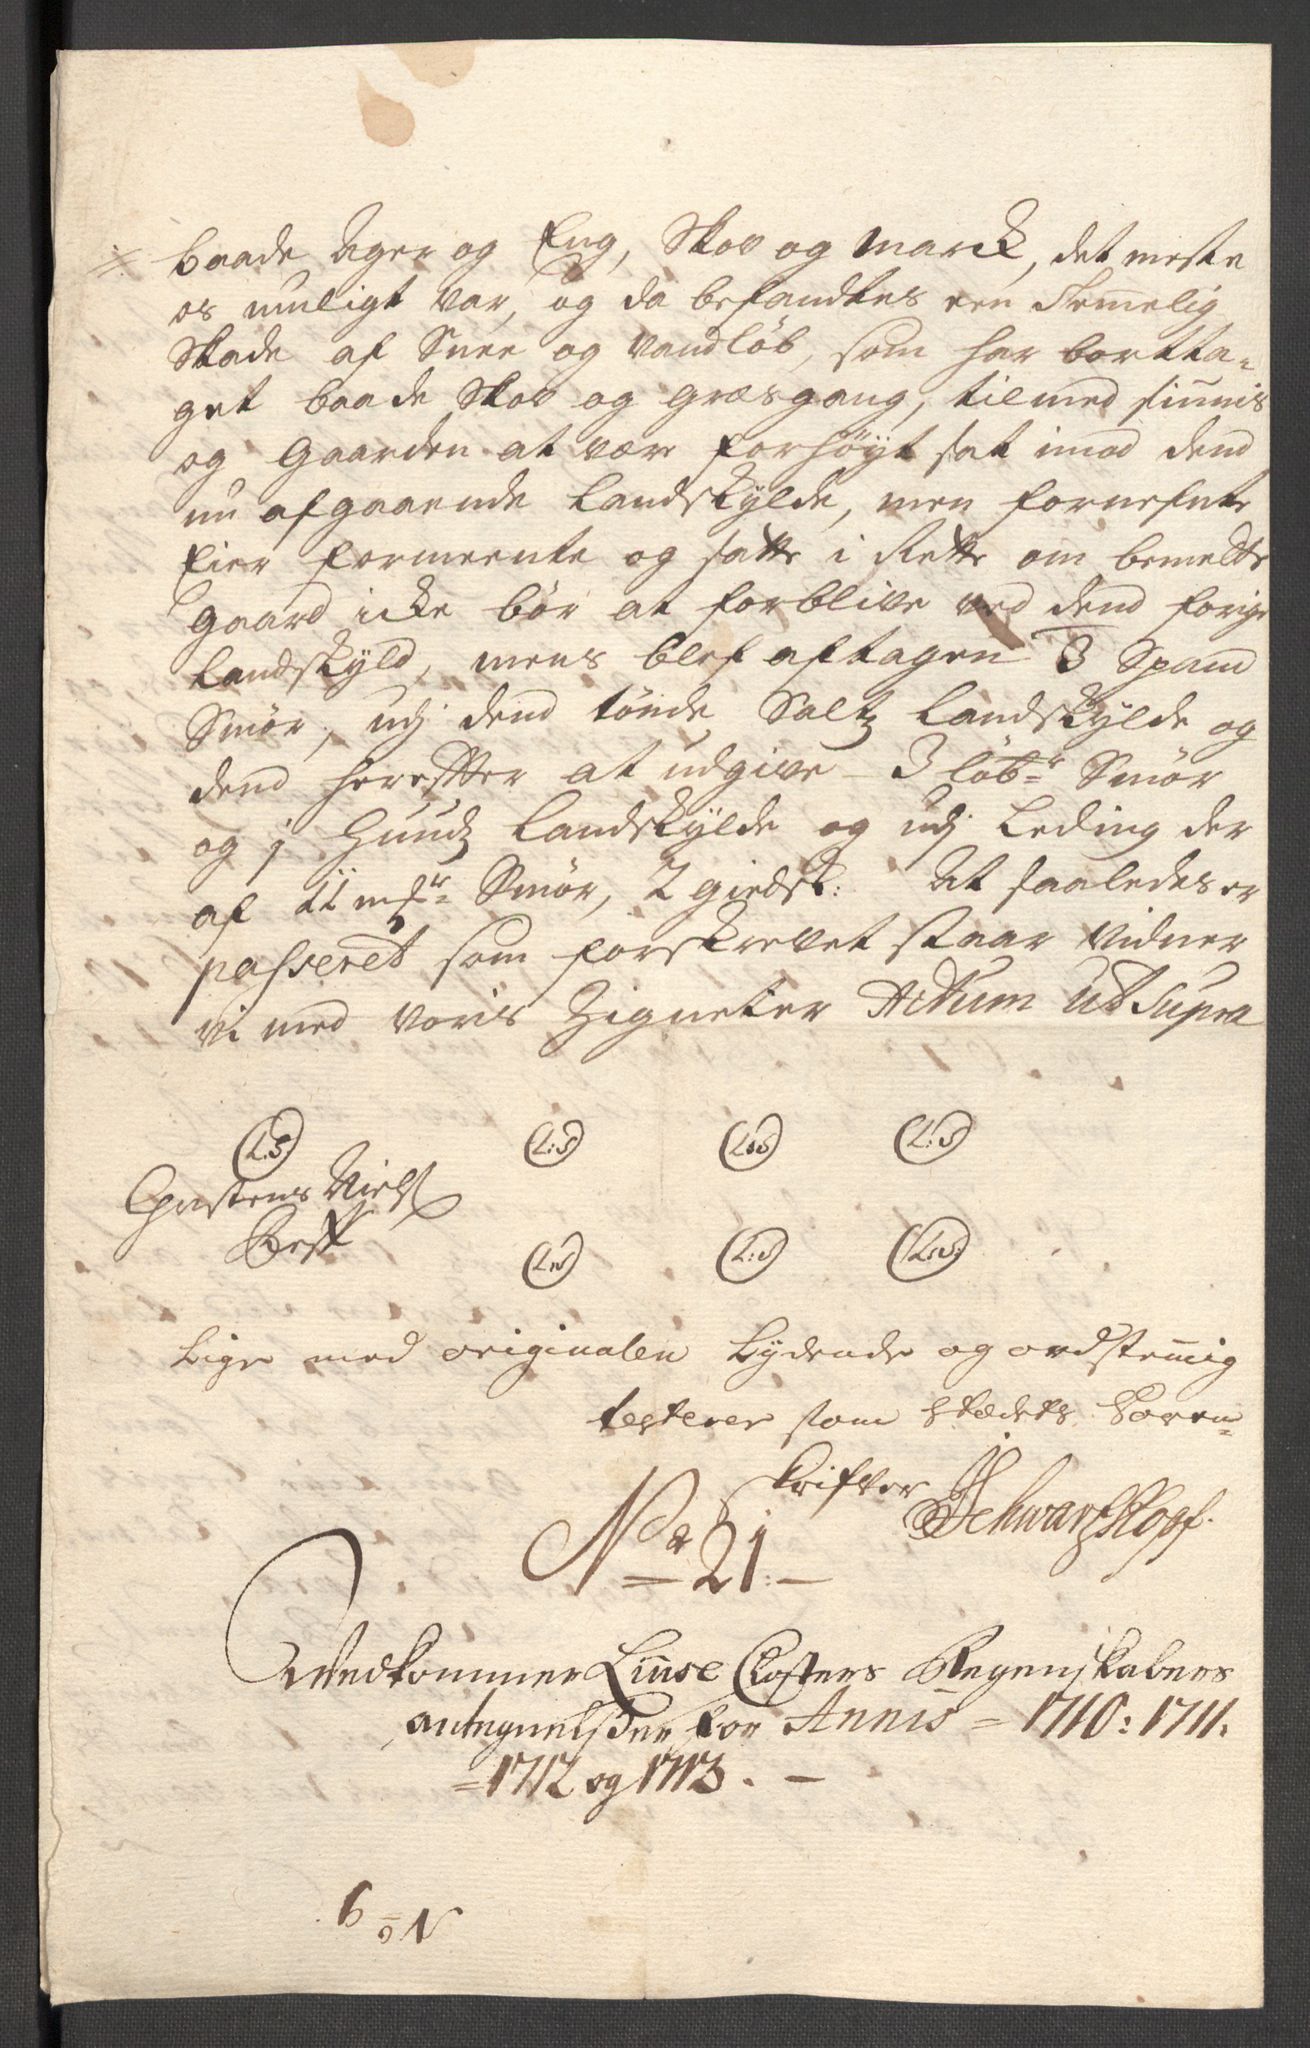 baade Ager og Eng, Skov og Marck, det meste
os muligt var, og da befandtes een Temmelig
Skade af Snee og Vandløb, som har bortta-
get baade Skov og græsgang, tilmed siunis
og Gaarden at være forhøyt sat imod dend
nu afgaaende Landskylde, men fornefnte
Eier formeente og satte i Rette om bemelte
Gaard icke bør at forblive ved dend forige
Landskyld, mens blef aftagen 3 Spand
Smør, udj dend tönde Saltz Landskylde og
dend herefter at udgive 3 løbr Smør
og j Huudz Landskylde og udj Leding der
af 11 mkr Smør, 2 giedsk: At saaledes er
passeret som forskrevet staar Vidner
vi med voris Zigneter Actum Ut Supra
(L.S) (L:S) (L:S) (L:S)
Christens Niels
(L:S) (L:S) (L:S)
Lige med originalen Lydende og ordstemig
testerer som Stædets Soren-
skrifver Schwartzkopf.
No 21.
Vedkommer Liuse Closters Regenskabers
antegnelser for Annis 1710: 1711.
1712 og 1713.
No 6